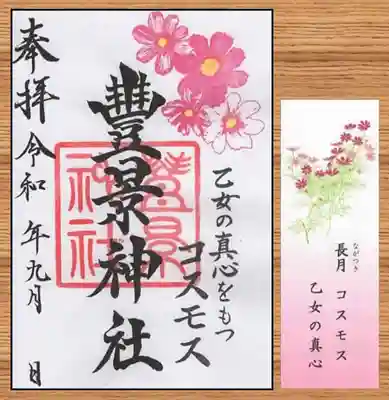 奉拝 令和 年九月 日
豐景神社
豐景
神社
乙女の真心をもつ
コスモス
ながつき
長月 コスモス
乙女の真心